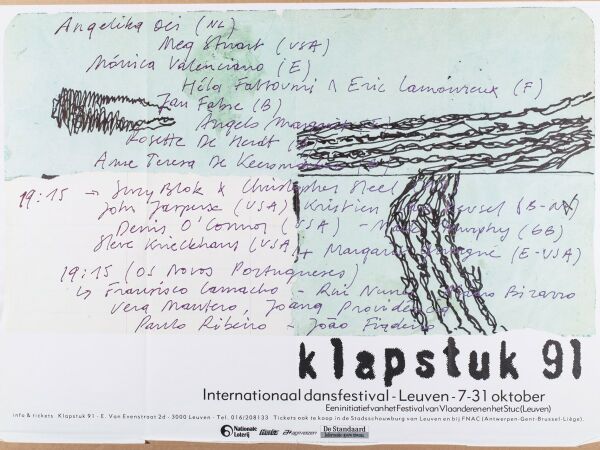 Angelika Oei (NL)
Meg Stuart (USA)
Mónica Valenciano (E)
Héla Fattoumi Λ Eric Lamoureux (F)
Jan Fabre (B)
Angels Margarit
Rosette De Herdt
Anne Teresa De Keersmaeker
19:15 → Suzy Blok & Christopher Steel
John Jasperse (USA) Kristien (B-NL)
Denis O'Connor (USA) - Murphy (GB)
Steve Krieckhaus (USA) + Margarita (E-USA)
19:15 (Os Novos Portugueses)
↳ Francisco Camacho - Rui Nunes Bizarro
Vera Mantero, Joana Providência
Paulo Ribeiro - João Fiadeiro
klapstuk 91
Internationaal dansfestival - Leuven - 7-31 oktober
Een initiatief van het Festival van Vlaanderen en het Stuc (Leuven)
info & tickets Klapstuk 91 - E. Van Evenstraat 2d - 3000 Leuven - Tel. 016/208133 Tickets ook te koop in de Stadsschouwburg van Leuven en bij FNAC (Antwerpen-Gent-Brussel-Liège).
Nationale Loterij De Standaard